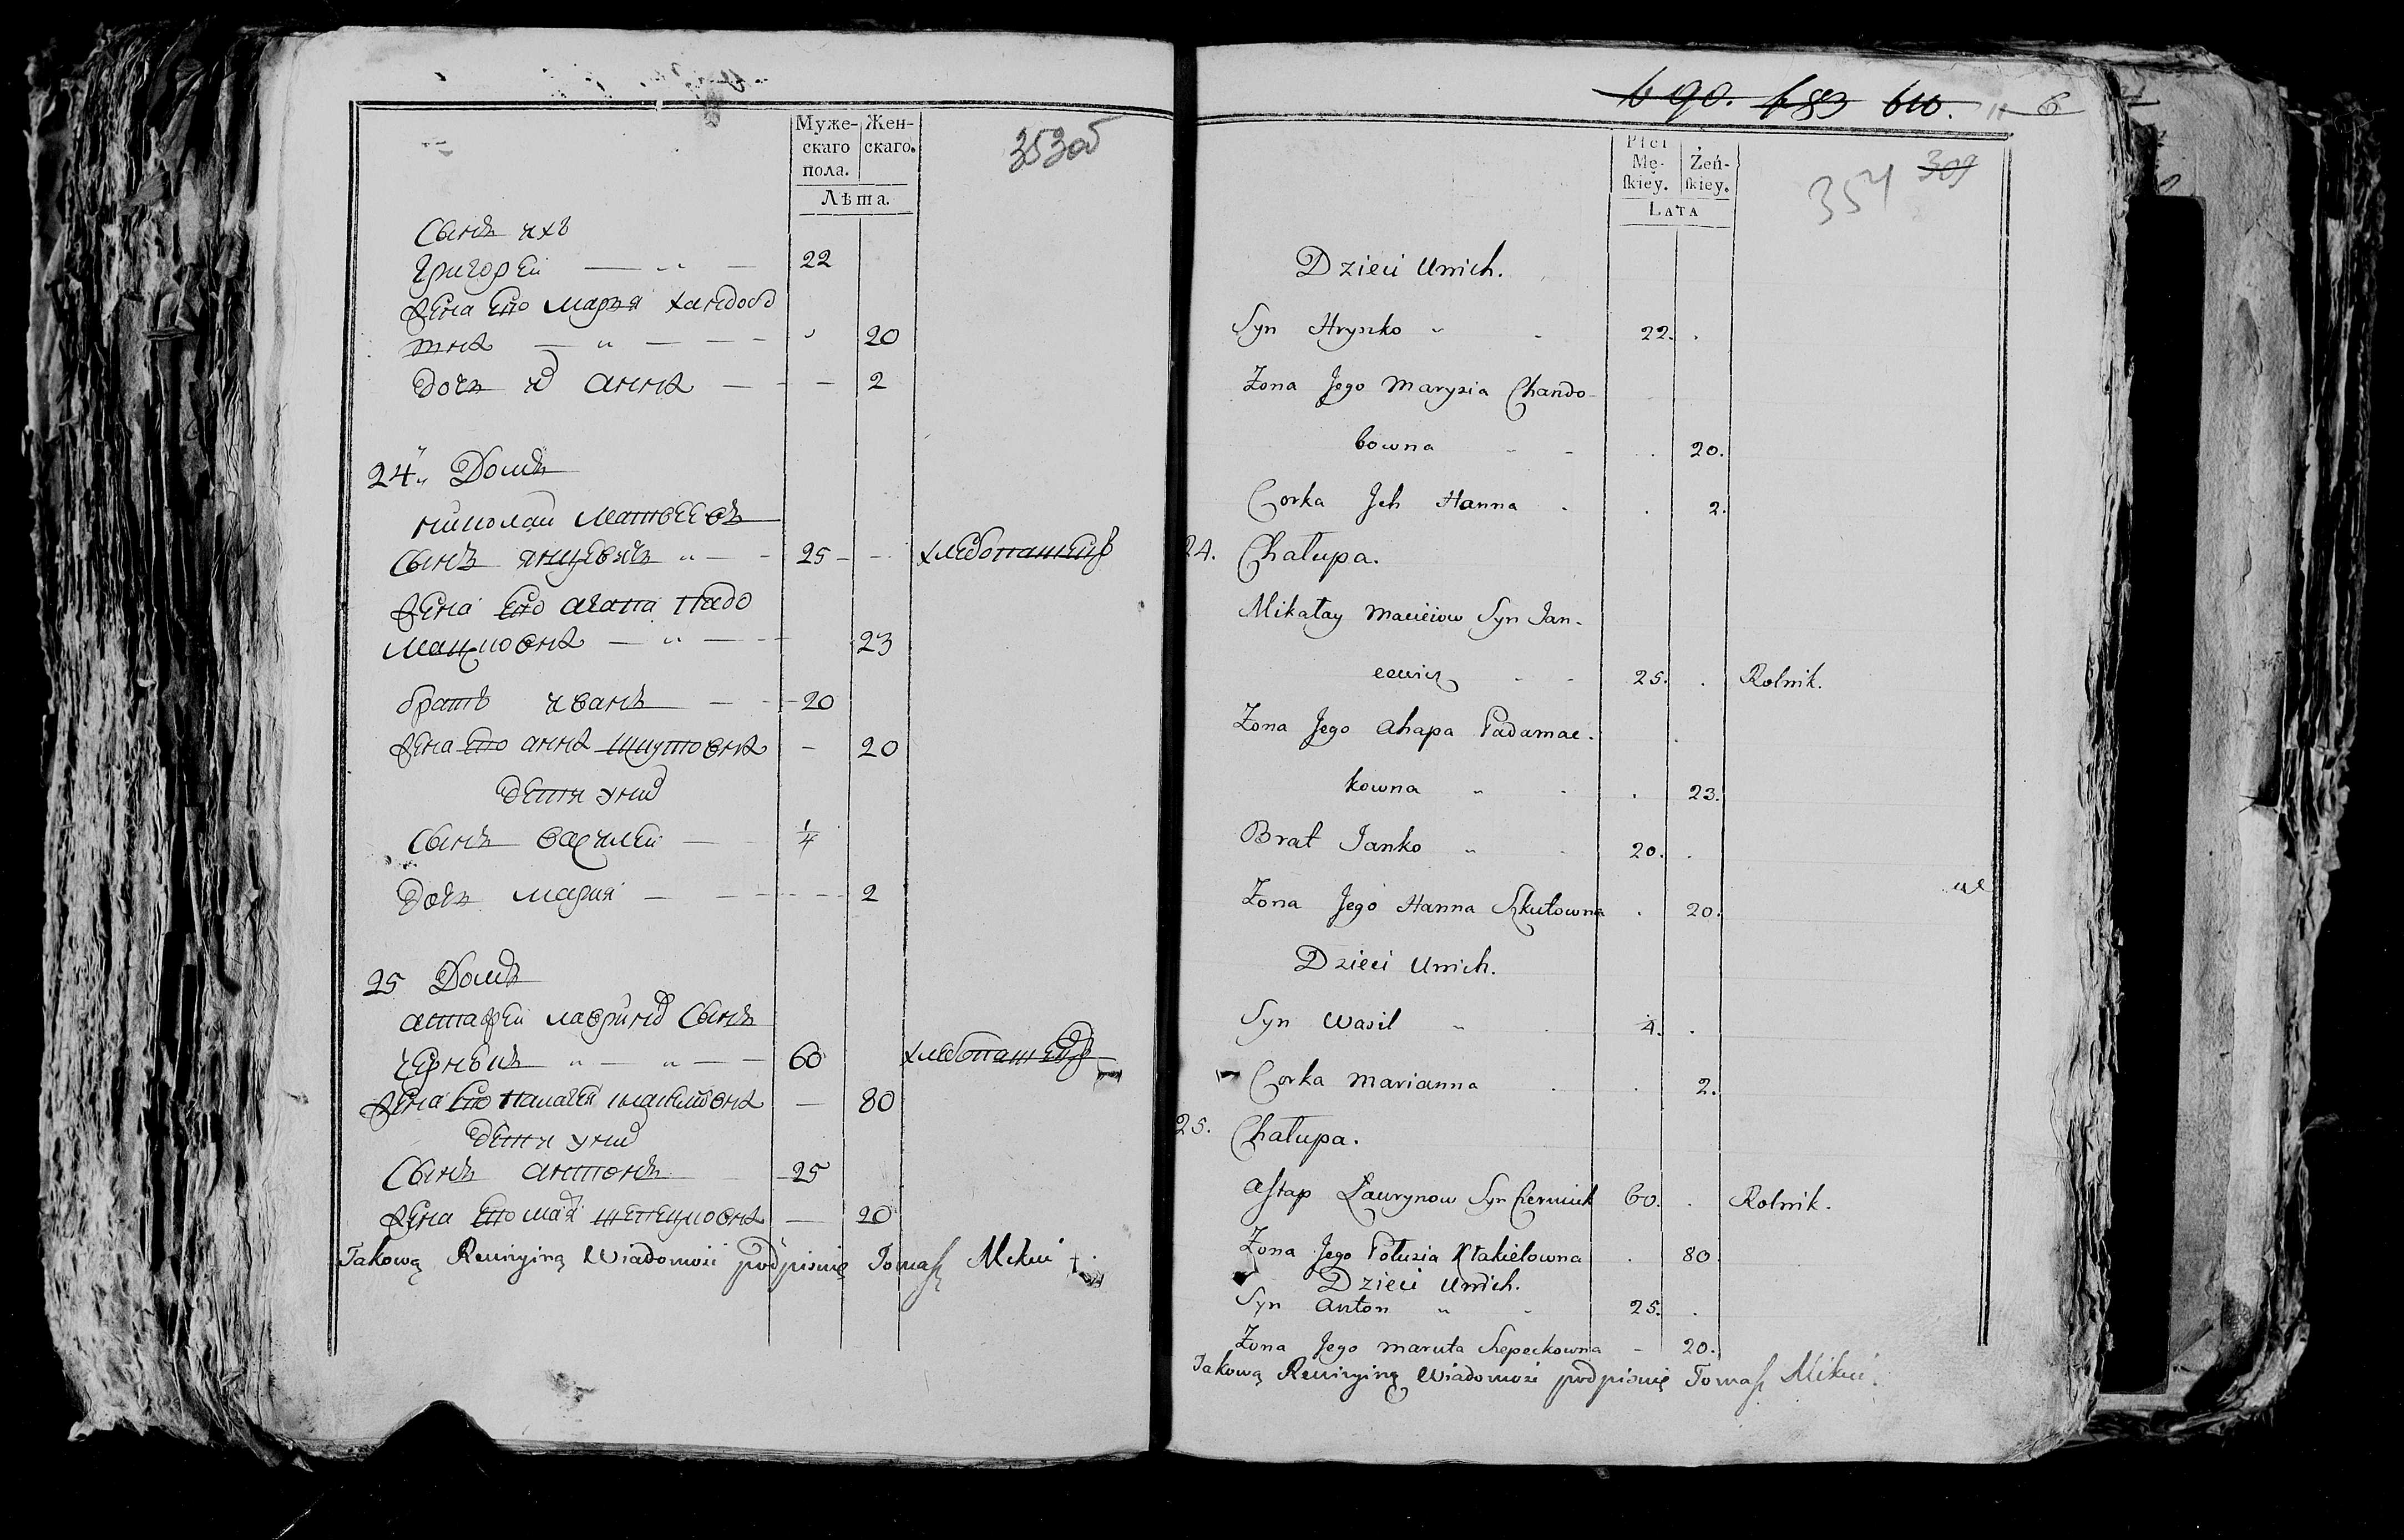 Муже-
скаго
пола.
Жен-
скаго.
Лѣта.
353 об
Сынъ ихъ
Григорей — „ — 22
Жена Его Марья Хандобо
вна — „ — — — 20
Дочь их Анна — — — 2
24. Домъ
Николай Матвеевъ
Сынъ Янцевичъ „ — 25 — — хлебопашецъ
Жена Его Агапа Падо
мацковна — „ — — 23
братъ Иванъ — — 20
Жена Его Анна Шкутовна — 20
дети у них
Сынъ Василей — — 1/4
Дочь Мария — — — — 2
25 Домъ
Астафей Лавринов Сынъ
„ — „ — — 60 хлебопашецъ
Жена Его Палагея — 80
дети у них
Сынъ Антонъ — 25
Жена Его — 20
Takową Rewizyiną Wiadomość podpisuię Tomasz
690. 689 610. 6
Płci
Mę-
skiey.
Żeń-
skiey.
LATA
354 309
Dzieci Unich.
Syn Hryszko „ - 22. .
Zona Jego Marysia Chando-
bowna - - . 20.
Corka Jch Hanna . . 2.
24. Chałupa.
Mikałay Macieiow Syn Jan-
cewicz - - 25. . Rolnik.
Zona Jego Ahapa Padamac-
kowna „ - . 23.
Brat Janko „ - 20. .
Zona Jego Hanna Szkutowna . 20.
Dzieci Unich.
Syn Wasil „ . 4. .
Corka Marianna . . 2.
25. Chałupa.
Astap Ławrynow Syn Czerniuk 60. . Rolnik.
Zona Jego Połuzia Ktakielowna . 80.
Dzieci Unich.
Syn Anton „ „ 25. .
Zona Jego Maruta Szepeckowna - 20.
Takową Rewizyiną Wiadomość podpisuię Tomasz